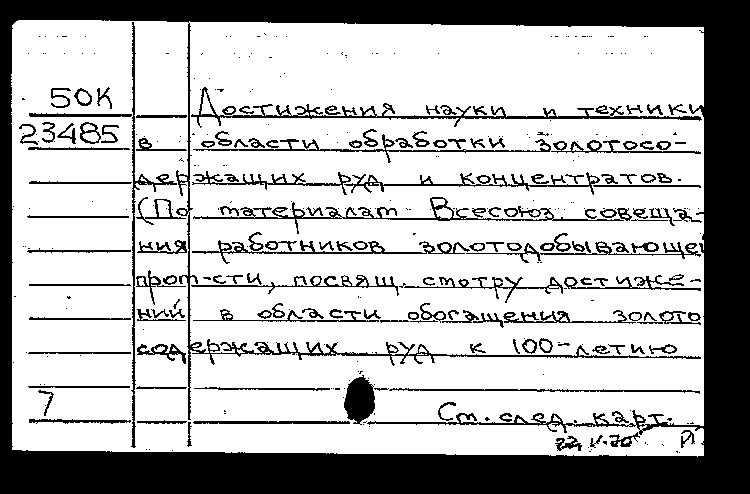 50К Достижения науки и техники
23485 в области обработки золотосо-
держащих руд и концентратов.
(По материалат Всесоюз. совеща-
ния работников золотодобывающей
пром-сти, посвящ. смотру достиже-
ний в области обогащения золото
содержащих руд к 100-летию
7 Ст. след. карт.
22.V.70 П